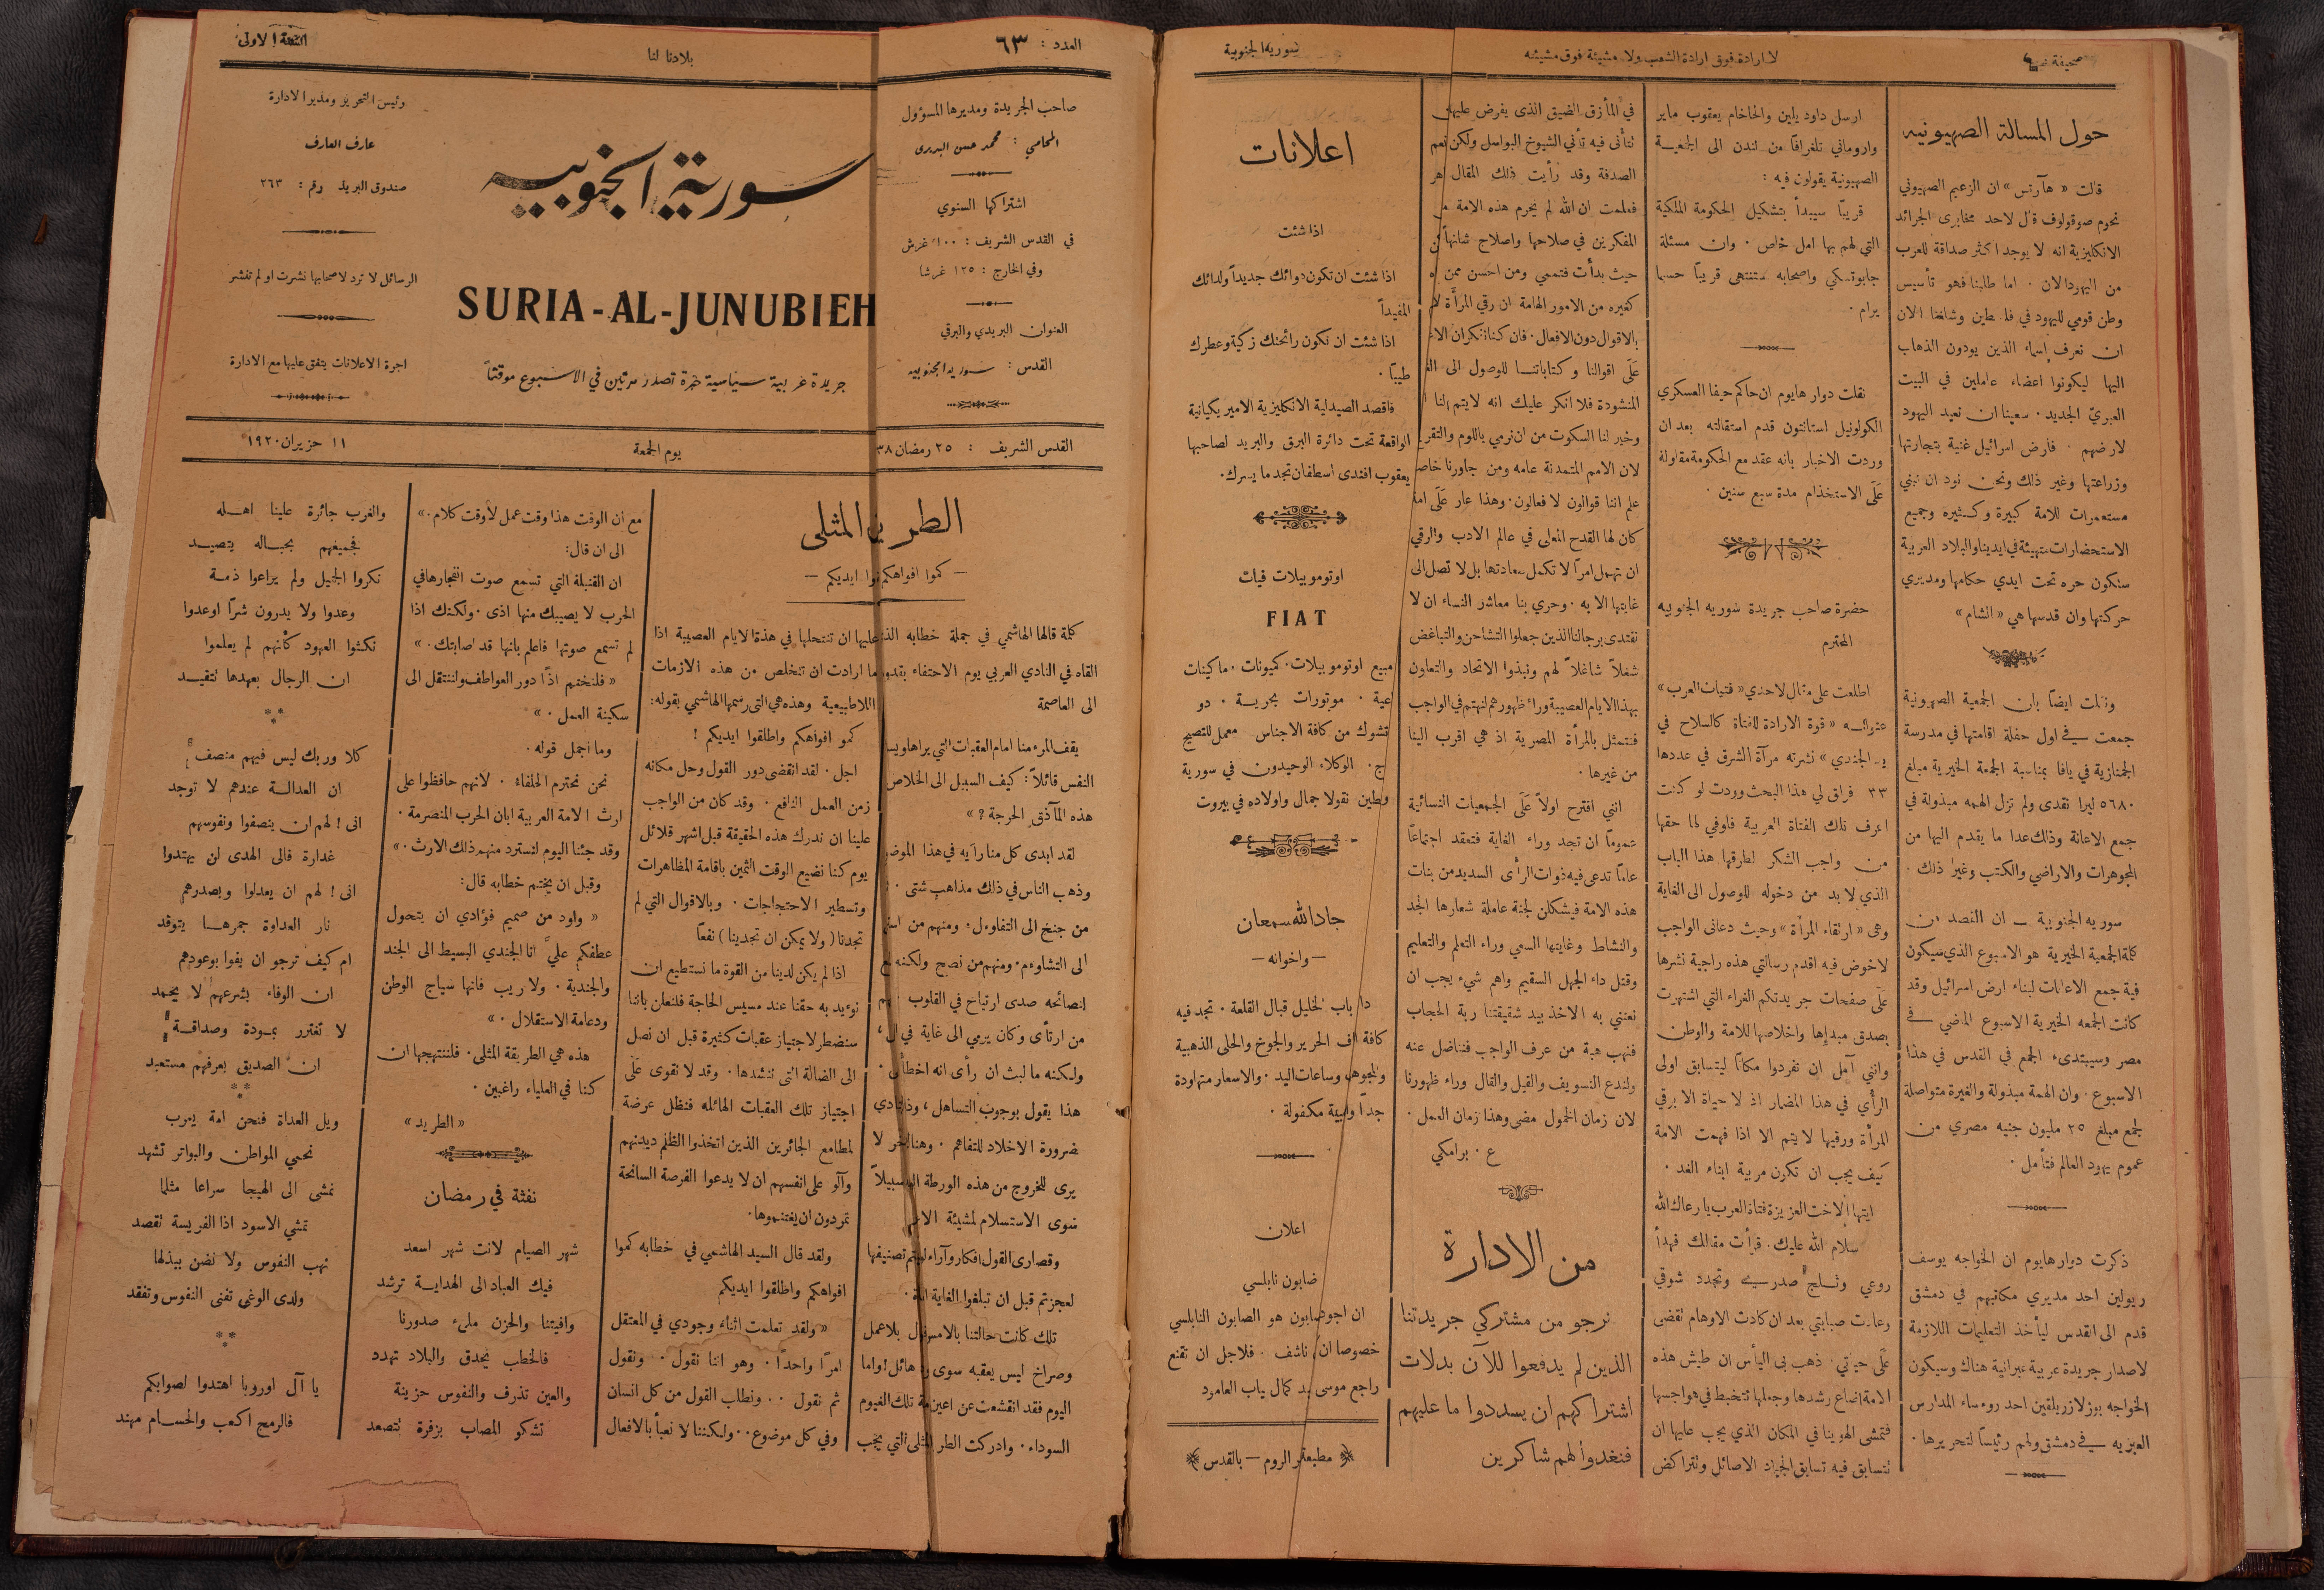 صحيفة
لا ارادة فوق ارادة الشعب ولا مشيئة فوق مشيئته
سورية الجنوبية
حول المسالة الصهيونيه
قالت « هآرتس » ان الزعيم الصهيوني
نحوم صوقولوف قال لاحد مخابرى الجرائد
الانكليزية انه لا يوجد اكثر صداقة للعرب
من اليهود الان . اما طلبنا فهو تأسيس
وطن قومي لليهود في فلسطين وشاغنا الان
ان نعرف إسماء الذين يودون الذهاب
اليها ليكونوا اعضاء عاملين في البيت
العبريّ الجديد . سعينا ان نعيد اليهود
لارضهم . فارض اسرائيل غنية بتجارتها
وزراعتها وغير ذلك ونحن نود ان نبني
مستعمرات للامة كبيرة وكثيره وجميع
الاستحضارات متهيئة في ايدينا والبلاد العربية
ستكون حره تحت ايدي حكامها ومديري
حركتها وان قدسها هي « الشام »
ونقلت ايضًا بان الجمعية الصهيونية
جمعت في اول حفلة اقامتها في مدرسة
الجمنازية في يافا بمناسبة الجمعة الخيرية مبلغ
٥٦٨٠ ليرا نقدى ولم تزل الهمه مبذولة في
جمع الاعانة وذلك عدا ما يقدم اليها من
المجوهرات والاراضي والكتب وغير ذلك .
سوريه الجنوبية — ان القصد من
كلمة الجمعية الخيرية هو الاسبوع الذي سيكون
فية جمع الاعانات لبناء ارض اسرائيل وقد
كانت الجمعه الخيرية الاسبوع الماضي في
مصر وسيبتدىء الجمع في القدس في هذا
الاسبوع . وان الهمة مبذولة والغيرة متواصلة
لجمع مبلغ ٢٥ مليون جنيه مصري من
عموم يهود العالم فتأمل .
ذكرت دوار هايوم ان الخواجه يوسف
ريولين احد مديري مكاتبهم في دمشق
قدم الى القدس ليأخذ التعليمات اللازمة
لاصدار جريدة عربية عبرانية هناك وسيكون
الخواجه بوز لازر يلقين احد روءساء المدارس
العبريه في دمشق ولهم رئيسًا لتحريرها .
ارسل داود يلين والحاخام يعقوب ماير
واروماني تلغرافًا من لندن الى الجمعية
الصهيونية يقولون فيه :
قريبًا سيبدأ بتشكيل الحكومة الملكية
التي لهم بها امل خاص . وان مسئلة
جابوتسكي واصحابه ستنتهى قريبًا حسبما
يرام .
نقلت دوار هايوم ان حاكم حيفا العسكري
الكولونيل استانتون قدم استقالته بعد ان
وردت الاخبار بانه عقد مع الحكومة مقاولة
عَلَى الاستخذام مدة سبع سنين .
حضرة صاحب جريدة سوريه الجنوبيه
المحترم
اطلعت على مقال لاحدي « فتيات العرب »
عنوانه « قوة الارادة للفتاة كالسلاح في
يد الجندي » نشرته مرآة الشرق في عددها
٣٣ فراق لي هذا البحث وودت لو كنت
اعرف تلك الفتاة العربية فاوفي لها حقها
من واجب الشكر لطرقها هذا الباب
الذي لا بد من دخوله للوصول الى الغاية
وهى « ارتقاء المرأة » وحيث دعانى الواجب
لاخوض فيه اقدم رسالتي هذه راجية نشرها
عَلَى صفحات جريدتكم الغراء التي اشتهرت
بصدق مبدإها واخلاصها للامة والوطن
وانني آمل ان تفردوا مكانًا ليتسابق اولى
الرأي في هذا المضمار اذ لا حياة الا برقي
المرأة ورقيها لا يتم الا اذا فهمت الامة
كيف يجب ان تكون مربية ابناء الغد .
ايتها الاخت العزيزة فتاة العرب يا رعاك الله
سلام الله عليك . قرأت مقالك فهدأ
روعي وثلج صدري وتجدد شوقي
وعادت صبابتي بعد ان كادت الاوهام تقضى
عَلَى حياتي . ذهب بى اليأس ان طيش هذه
الامة اضاع رشدها وجعلها تتخبط في هواجسها
فتمشى الهوينا في المكان الذي يجب عليها ان
تتسابق فيه تسابق الجياد الاصائل وتتراكض
في المأزق الضيق الذى يفرض عليها
تتأنى فيه تأني الشيوخ البواسل ولكن نعم
الصدفة وقد رأيت ذلك المقال
فعلمت ان الله لم يحرم هذه الامة من
المفكرين في صلاحها واصلاح شانها
حيث بدأت فتممي ومن احسن ممن
كغيره من الامور الهامة ان رقي المرأة
بالاقوال دون الافعال . فان كنا ننكر ان
عَلَى اقوالنا وكتاباتنا للوصول الى
المنشودة فلا انكر عليك انه لا يتم لنا
وخير لنا السكوت من ان نرمي باللوم والتقريع
لان الامم المتمدنة عامه ومن جاورنا خاصة
علم اننا قوالون لا فعالون . وهذا عار عَلَى امة
كان لها القدح المعلى في عالم الادب والرقي
ان تهمل امرًا لا تكمل سعادتها بل لا تصل الى
غايتها الا به . وحري بنا معاشر النساء ان لا
نقتدى برجالنا الذين جعلوا التشاحن والتباغض
شغلاً شاغلاً لهم ونبذوا الاتحاد والتعاون
بهذا الايام العصيبة وراء ظهورهم لنهتم في الواجب
فنتمثل بالمرأة المصرية اذ هي اقرب الينا
من غيرها .
انني اقترح اولاً عَلَى الجمعيات النسائية
عمومًا ان تجد وراء الغاية فتعقد اجتماعًا
عامًا تدعى فيه ذوات الرأى السديد من بنات
هذه الامة فيشكلن لجنة عاملة شعارها الجد
والنشاط وغايتها السعي وراء التعلم والتعليم
وقتل داء الجهل السقيم واهم شيء يجب ان
نعتني به الاخذ بيد شقيقتنا ربة الحجاب
فنهب هبة من عرف الواجب فنناضل عنه
ولندع التسويف والقيل والقال وراء ظهورنا
لان زمان الخمول مضى وهذا زمان العمل .
ع . برامكي
من الادارة
نرجو من مشتركي جريدتنا
الذين لم يدفعوا للآن بدلات
اشتراكهم ان يسددوا ما عليهم
فنغدوا لهم شاكرين
اعلانات
اذا شئت
اذا شئت ان تكون دوائك جديداً ولدائك
المفيداً
اذا شئت ان تكون رائحتك زكية وعطرك
طيبًا .
فاقصد الصيدلية الانكليزية الاميريكيانية
الواقعة تحت دائرة البرق والبريد لصاحبها
يعقوب افندى اسطفان تجد ما يسرك .
اوتوموبيلات فيات
FIAT
مبيع اوتوموبيلات . كميونات . ماكينات
عية . موتورات بحرية . دو
تشوك من كافة الاجناس معمل للتصليح
ج . الوكلاء الوحيدون في سورية
وفلسطين نقولا جمال واولاده في بيروت
جاد الله سمعان
— واخوانه —
باب الخليل قبال القلعة . تجد فيه
كافة الحرير والجوخ والحلى الذهبية
والمجوهر وساعات اليد . والاسعار متهاودة
جدًا مكفولة .
اعلان
صابون نابلسي
ان اجود صابون هو الصابون النابلسي
خصوصا ان ناشف . فلاجل ان تقنع
راجع موسى كمال بباب العامود
مطبعة الروم — بالقدس
العدد : ٦٣
بلادنا لنا
السنة الاولى
صاحب الجريدة ومديرها المسؤول
المحامي : محمد حسن البديرى
اشتراكها السنوي
في القدس الشريف : ١٠٠ غرش
وفي الخارج : ١٢٥ غرشا
العنوان البريدي والبرقي
القدس : سورية الجنوبيه
سورية الجنوبيه
SURIA-AL-JUNUBIEH
جريدة عربية سياسية حرة تصدر مرتين في الاسبوع موقتاً
رئيس التحرير ومدير الادارة
عارف العارف
صندوق البريد رقم : ٢٦٣
الرسائل لا ترد لاصحابها نشرت او لم تنشر
اجرة الاعلانات يتفق عليها مع الادارة
القدس الشريف : ٢٥ رمضان ٣٨
يوم الجمعة
١١ حزيران ١٩٢٠
الطريق المثلى
— كموا افواهكم ايديكم —
كلمة قالها الهاشمي في جملة خطابه الذي
القاه في النادي العربي يوم الاحتفاء بقدومه
الى العاصمة
يقف المرء منا امام العقبات التي يراها ويسأل
النفس قائلاً : كيف السبيل الى الخلاص
هذه المآذق الحرجة ؟ »
لقد ابدى كل منا رأيه في هذا الموضوع
وذهب الناس في ذلك مذاهب شتى .
من جنح الى التفاوءل ومنهم من
الى التشاوءم ومنهم من نصح ولكنه لم
لنصائحه صدى ارتياح في القلوب
من ارتأى وكان يرمي الى غاية في
ولكنه ما لبث ان رأى انه اخطأ .
هذا يقول بوجوب التساهل ، وذا ينادي
ضرورة الاخلاد للتفاهم . وهنا آخر لا
يرى للخروج من هذه الورطة سبيلاً
سوى الاستسلام لمشيئة
وقصارى القول افكار وآراء لم يتم تصنيفها
لعجزتم قبل ان تبلغوا الغاية
تلك كانت حالتنا بالامس قول بلا عمل
وصراخ ليس يعقبه سوى هائل ! واما
اليوم فقد انقشعت عن اعين تلك الغيوم
السوداء . وادركت الطر المثلى التي يجب
عليها ان تنتحلها في هذة الايام العصيبة اذا
ما ارادت ان تتخلص من هذه الازمات
اللاطبيعية وهذه هي التى رسمها الهاشمي بقوله :
كموا افواهكم واطلقوا ايديكم !
اجل . لقد انقضى دور القول وحل مكانه
زمن العمل النافع . وقد كان من الواجب
علينا ان ندرك هذه الحقيقة قبل اشهر قلائل
يوم كنا نضيع الوقت الثمين باقامة المظاهرات
وتسطير الاحتجاجات . وبالاقوال التي لم
تجدنا ( ولا يمكن ان تجدينا ) نفعًا
اذا لم يكن لدينا من القوة ما نستطيع ان
نوءيد به حقنا عند مسيس الحاجة فلنعلن باننا
سنضطر لاجتياز عقبات كثيرة قبل ان نصل
الى الضالة التى ننشدها . وقد لا نقوى عَلَى
اجتياز تلك العقبات الهائله فنظل عرضة
لمطامع الجائرين الذين اتخذوا الظلم ديدنهم
وآلو على انفسهم ان لا يدعوا الفرصة السانحة
تمر دون ان يغتنموها .
ولقد قال السيد الهاشمي في خطابه كموا
افواهكم واطلقوا ايديكم
« ولقد تعلمت اثناء وجودي في المعتقل
امرًا واحدًا . وهو اننا نقول . ونقول
ثم نقول .. ونطلب القول من كل انسان
وفي كل موضوع .. ولكننا لا نعبأ بالافعال
مع ان الوقت هذا وقت عمل لا وقت كلام . »
الى ان قال :
ان القنبلة التي تسمع صوت انفجارها في
الحرب لا يصيبك منها اذى . ولكنك اذا
لم تسمع صوتها فاعلم بانها قد اصابتك . »
« فلنختم اذًا دور العواطف ولننتقل الى
سكينة العمل . »
وما اجمل قوله .
نحن نحترم الحلفاء . لانهم حافظوا على
ارث الامة العربية ابان الحرب المنصرمة .
وقد جئنا اليوم لنسترد منهم ذلك الارث . »
وقبل ان يختم خطابه قال :
« واود من صميم فؤادي ان يتحول
عطفكم عليَّ انا الجندي البسيط الى الجند
والجندية . ولا ريب فانها سياج الوطن
ودعامة الاستقلال . »
هذه هي الطريقة المثلى . فلننتهجها ان
كنا في العلياء راغبين .
« الطريد »
نفثة في رمضان
شهر الصيام لانت شهر اسعد
فيك العباد الى الهداية ترشد
وافيتنا والحزن ملىء صدورنا
فالخطب يحدق والبلاد تهدد
والعين تذرف والنفوس حزينة
تشكو المصاب بزفرة تتصعد
والغرب جائرة علينا اهله
فجميعهم بحباله يتصيد
نكروا الجميل ولم يراعوا ذمة
وعدوا ولا يدرون شرًا اوعدوا
نكثوا العهود كأنهم لم يعلموا
ان الرجال بعهدها تتقيد
كلا وربك ليس فيهم منصف
ان العدالة عندهم لا توجد
انى ! لهم ان ينصفوا ونفوسهم
غدارة فالى الهدى لن يهتدوا
انى ! لهم ان يعدلوا وبصدرهم
نار العداوة جمرها يتوقد
ام كيف ترجو ان يفوا بوعودهم
ان الوفاء بشرعهم لا يحمد
لا تغترر بمودة وصداقة
ان الصديق بعرفهم مستعبد
ويل العداة فنحن امة يعرب
نحمي المواطن والبواتر تشهد
نمشى الى الهيجا سراعا مثلما
تمشي الاسود اذا الفريسة تقصد
نهب النفوس ولا نضن ببذلها
ولدى الوغى تفنى النفوس وتفقد
يا آل اوروبا اهتدوا لصوابكم
فالرمح اكعب والحسام مهند